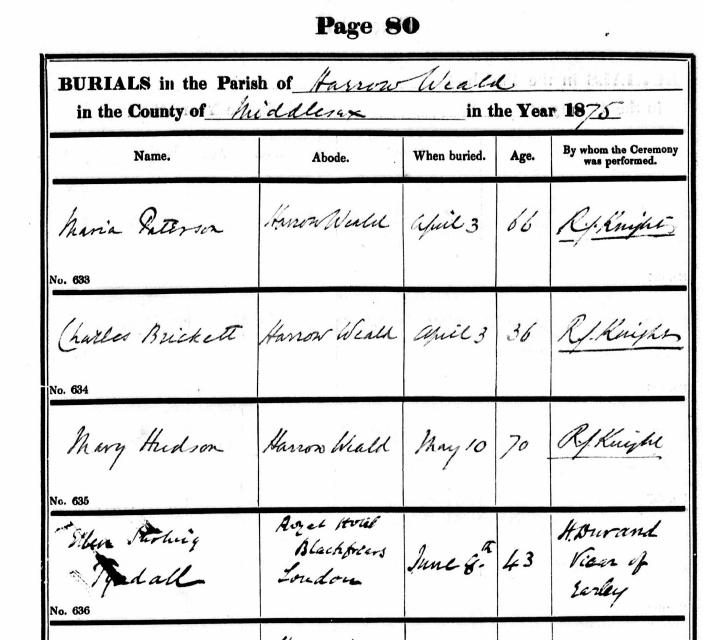 Page 80
BURIALS in the Parish of Harrow Weald
in the County of Middlesex in the Year 1875
Name. Abode. When buried. Age. By whom the Ceremony was performed.
Maria Paterson Harrow Weald April 3 66 R J Knight
No. 633
Charles Brickett Harrow Weald April 3 36 R J. Knight
No. 634
Mary Hudson Harrow Weald May 10 70 R J Knight
No. 635
Ellen Royal Hotel H. Durand
Blackfriars June 8th 43 Vicar of
Tyndall London Earley
No. 636